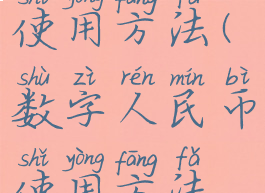 shǐ yòng fāng fǎ
使用方法(
shù zì rén mín bì
数字人民币
shǐ yòng fāng fǎ
使用方法